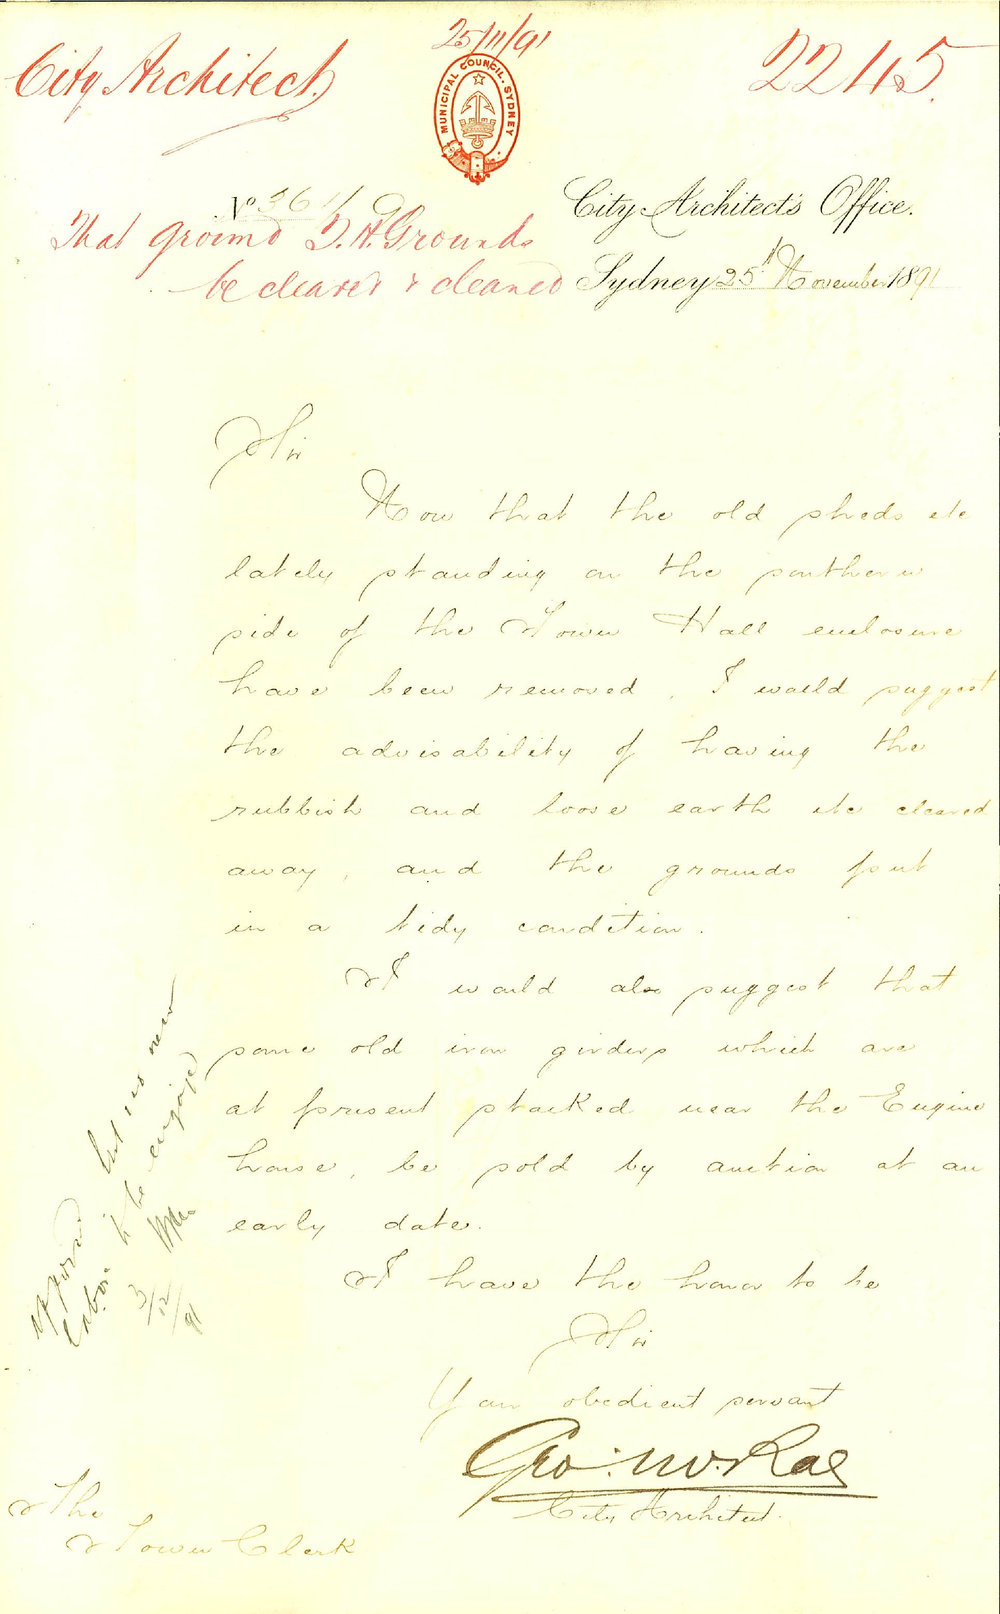 25/11/91
City Architect.
2245.
MUNICIPAL COUNCIL. SYDNEY
No 361/91
City Architect's Office.
That ground T.H. Grounds
be cleared & cleaned
Sydney 25th November 1891
Sir
Now that the old sheds etc
lately standing on the southern
side of the Town Hall enclosure
have been removed, I would suggest
the advisability of having the
rubbish and loose earth etc cleared
away, and the grounds put
in a tidy condition.
I would also suggest that
some old iron girders which are
at present stacked near the Engine
house, be sold by auction at an
early date.
I have the honor to be
Sir
Your obedient servant
Geo. McRae
City Architect.
The
Town Clerk
approved but no new
labor to be engaged
3/12/91